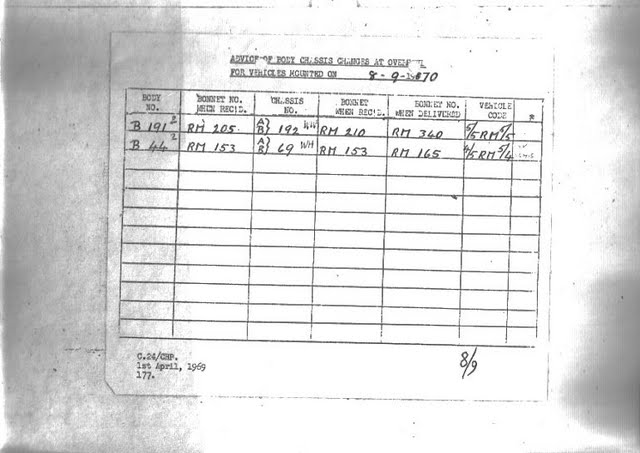 ADVICE OF BODY CHASSIS CHANGES AT OVERHAUL
FOR VEHICLES MOUNTED ON 8-9-1970
BODY NO. BONNET NO. WHEN REC'D. CHASSIS NO. BONNET WHEN REC'D. BONNET NO. WHEN DELIVERED VEHICLE CODE *
B 191² RM 205 A} B} 192 RM 210 RM 340 5/5RM5/5
B 44² RM 153 A} B} 69 WH RM 153 RM 165 5/5RM5/4
C.24/CHP.
1st April, 1969
177.
8/9